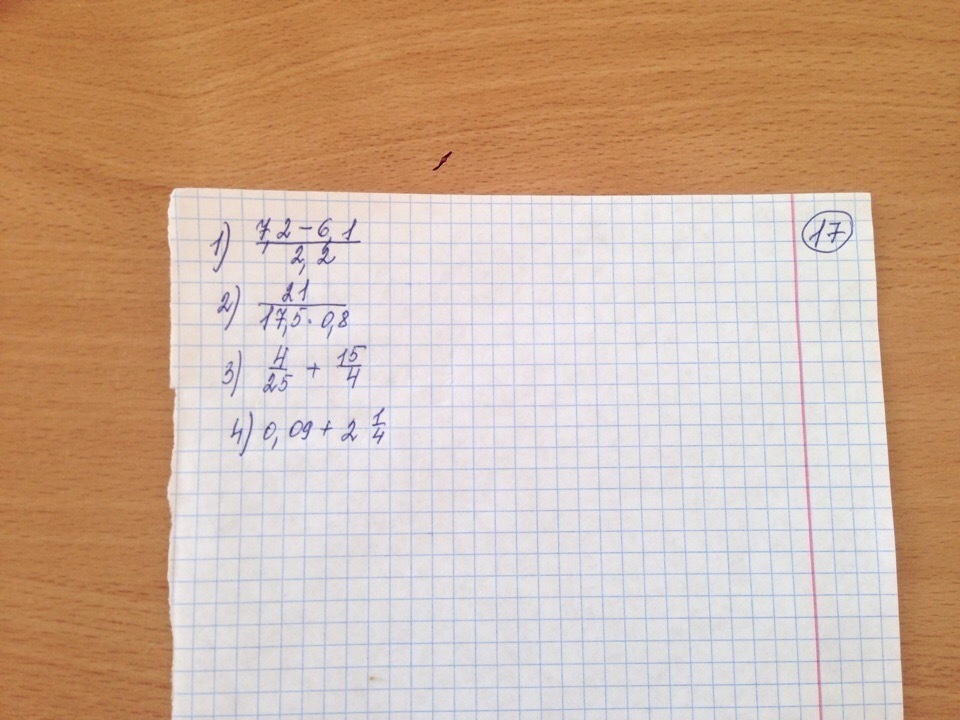 17
1) 7,2 - 6,1
2,2
2) 21
17,5 · 0,8
3) 4/25 + 15/4
4) 0,09 + 2 1/4